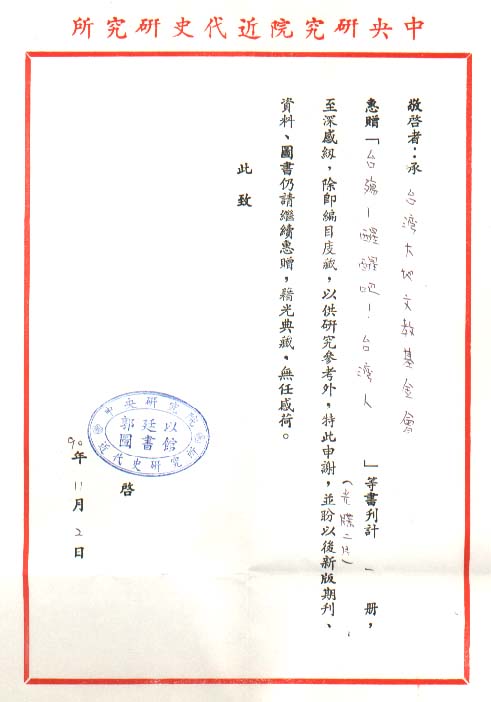 中央研究院近代史研究所
敬啓者:承 台灣大地文教基金會
惠贈「台殤—醒醒吧!台灣人」等書刊計 一 冊,
(光牒二片)
至深感紉,除即編目庋藏,以供研究參考外,特此申謝,並盼以後新版期刊、
資料、圖書仍請繼續惠贈,藉光典藏,無任感荷。
此致
中央研究院
郭廷以
圖書館
近代史研究所
啓
90年11月2日